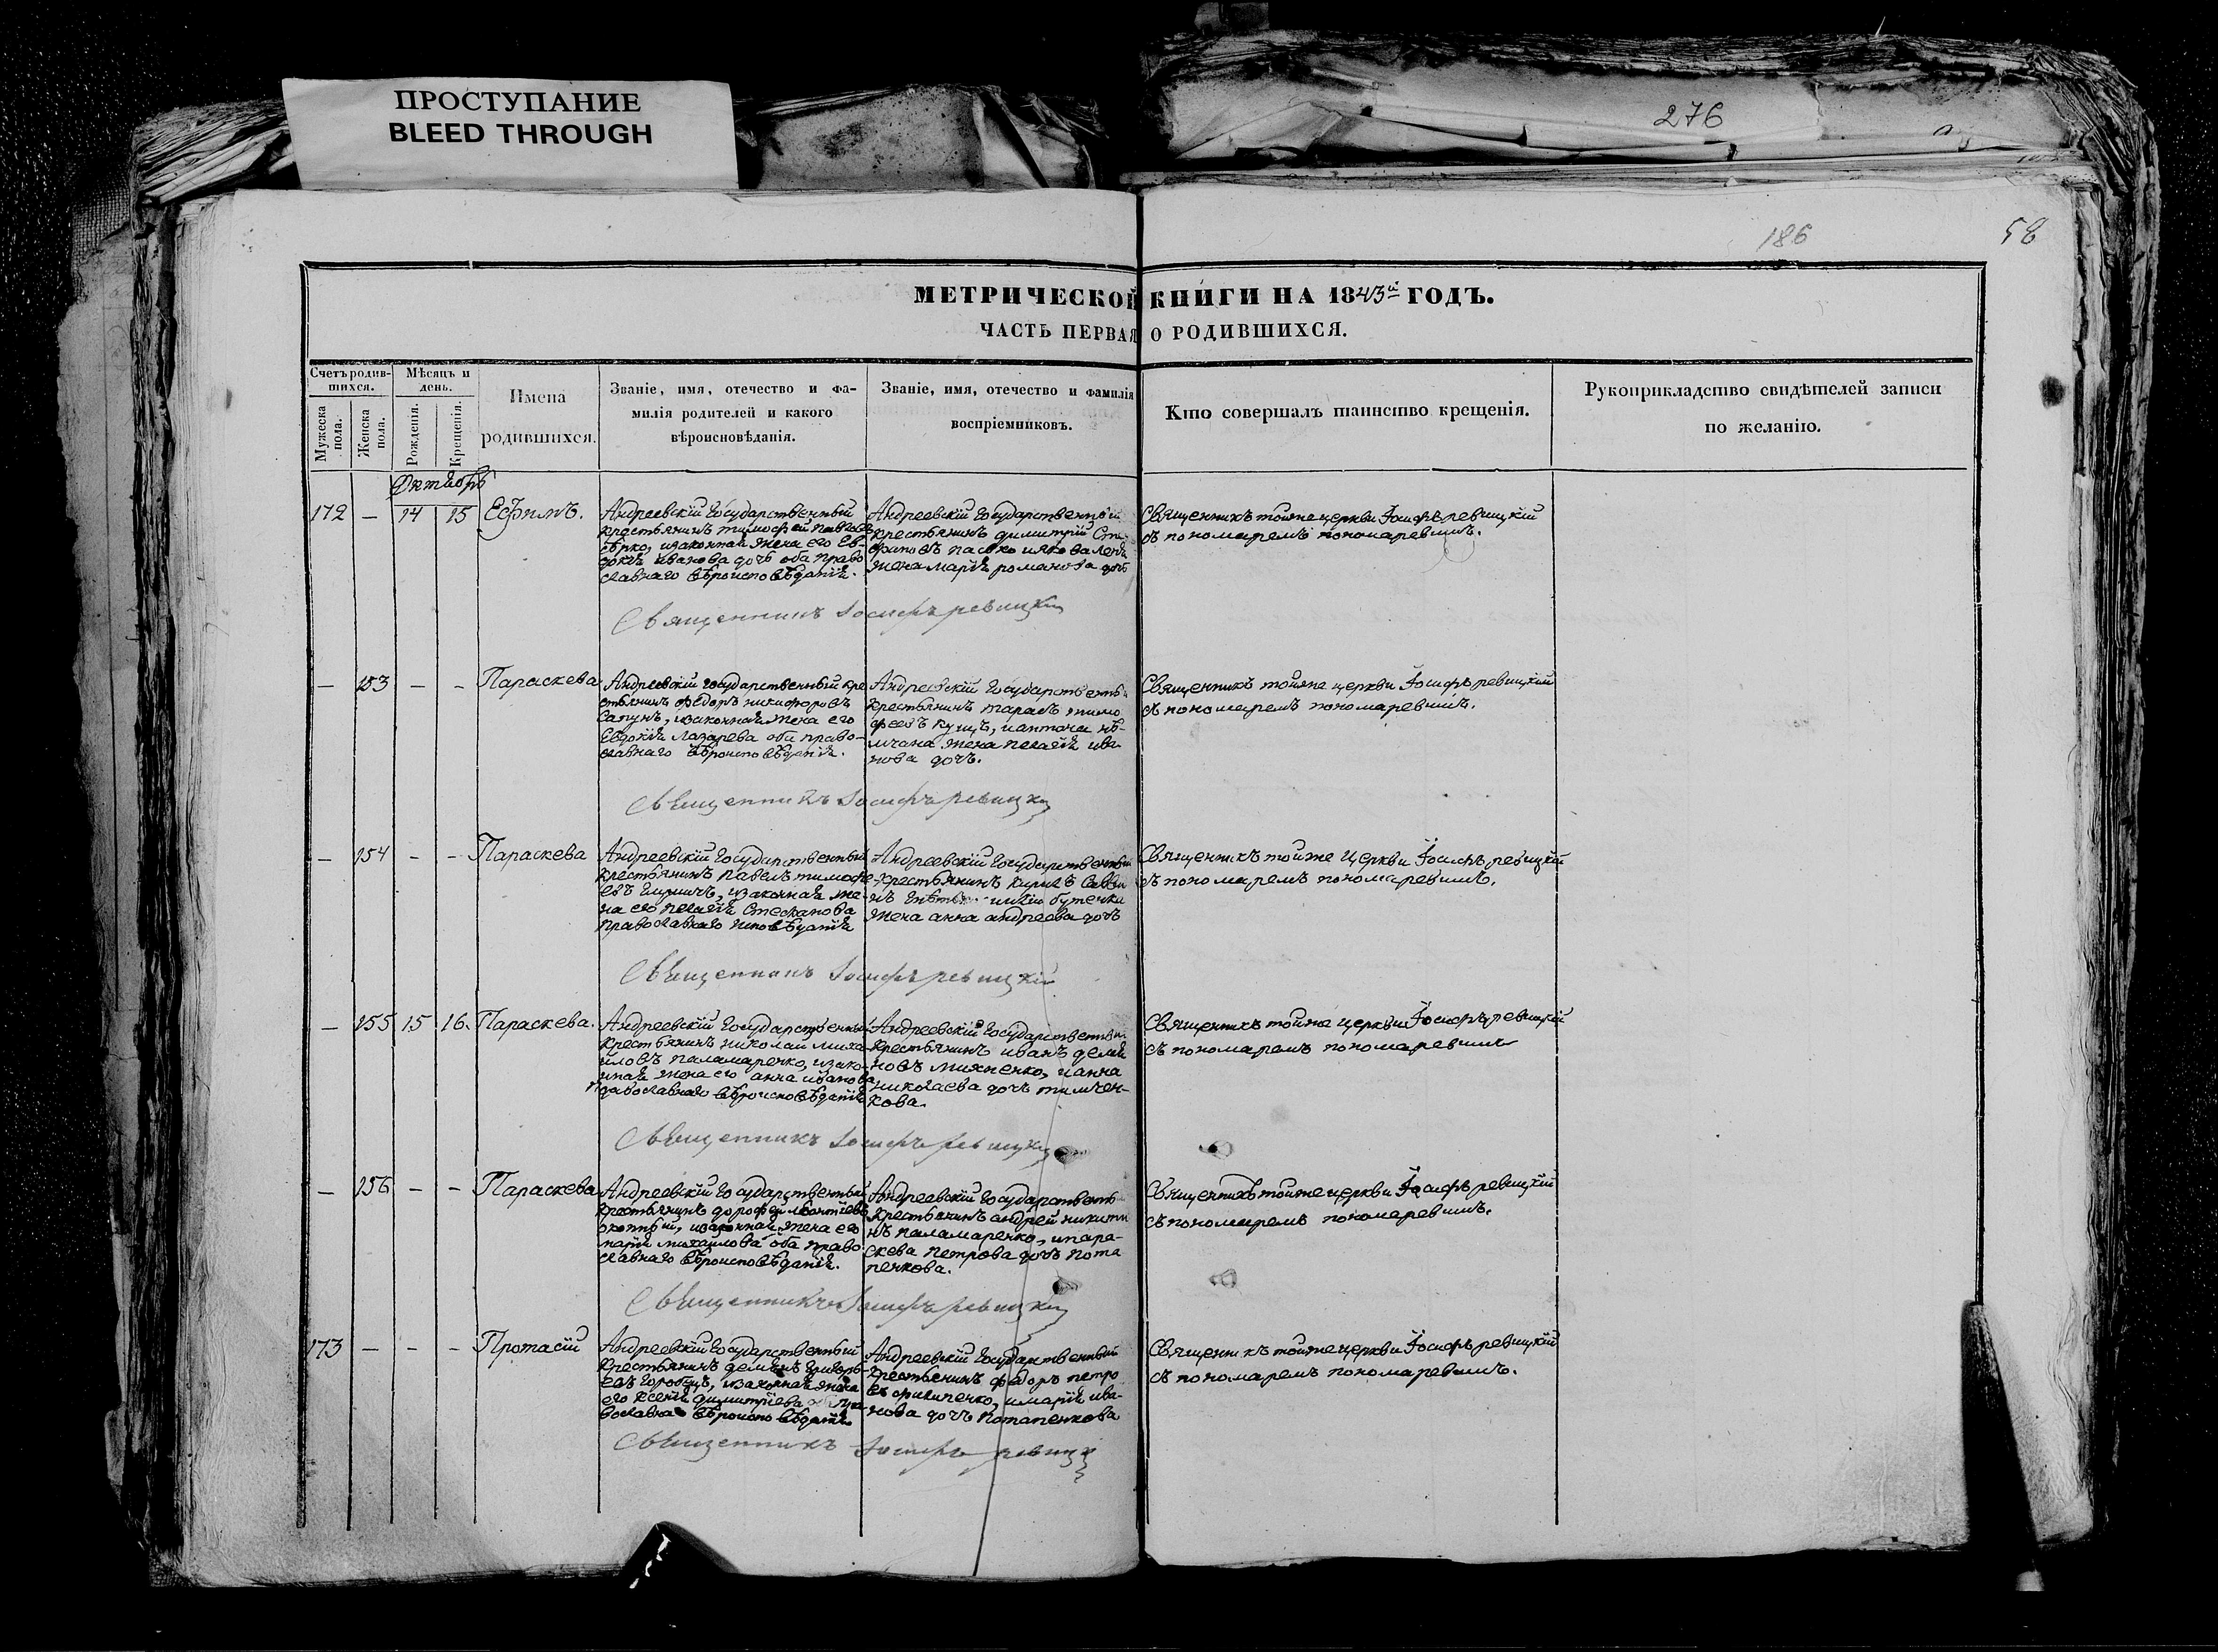 ПРОСТУПАНИЕ
BLEED THROUGH
276
186
58
МЕТРИЧЕСКОЙ КНИГИ НА 1843й ГОДЪ.
ЧАСТЬ ПЕРВАЯ О РОДИВШИХСЯ.
Счетъ родив-
шихся.
Мужеска пола.
Женска пола.
Мѣсяцъ и
день.
Рожденія.
Крещенія.
Имена
родившихся.
Званіе, имя, отечество и фа-
милія родителей и какого
вѣроисповѣданія.
Званіе, имя, отечество и фамилія
воспріемниковъ.
Кто совершалъ таинство крещенія.
Рукоприкладство свидѣтелей записи
по желанію.
Октябрь
172 — 14 15 Ефимъ.
Андреевскій Государственный
крестьянинъ тимофей
сѣрко, изаконная жена его Ев-
докія иванова дочь оба право
славнаго вѣроисповѣданія.
Андреевскій Государственный
крестьянинъ димитрій Сте-
пасько
жена марія романова дочь
Священникъ тойже церкви Іосифъ ревицкій
съ пономаремъ пономаревимъ.
Священникъ Іосифъ ревицкій
— 153 — — Параскева
Андреевскій государственный кре
стьянинъ федоръ никифоровъ
Сапунъ, изаконная жена его
Евдокія Лазарева оба право-
славнаго вѣроисповѣданія.
Андреевскій Государственны
крестьянинъ тарасъ тимо
феевъ куцъ, иантона
жена пелагія ива
нова дочь.
Священникъ тойже церкви Іосифъ ревицкій
съ пономаремъ пономаревимъ.
Священникъ Іосифъ ревицкій
— 154 — — Параскева
Андреевскій Государственный
крестьянинъ Павелъ тимофе
евъ изаконная же-
на его пелагія Стефанова
православнаго исповѣданія
Андреевскій Государственный
крестьянинъ
бутенка
жена анна андреева дочь
Священникъ тойже Церкви Іосифъ ревицкій
съ пономаремъ пономаревимъ.
Священникъ Іосифъ ревицкій
— 155 15 16. Параскева.
Андреевскій Государственный
крестьянинъ николай миха
йловъ паламаренко, изако-
ная жена его анна иванова
православнаго вѣроисповѣданія
Андреевскій Государствен
крестьянинъ иванъ демья
новъ михненко, ианна
николаева дочь тимчен-
кова.
Священникъ тойже церкви Іосифъ ревицкій
съ пономаремъ пономаревимъ
Священникъ Іосифъ ревицкій
— 156 — — Параскева
Андреевскій Государственный
крестьянинъ дорофей леонтіевъ
изаконная жена его
марія михайлова оба право
славнаго вѣроисповѣданія.
Андреевскій Государственны
крестьянинъ андрей никити
нъ паламаренко, ипара-
скева петрова дочь пота
пенкова.
Священникъ тойже церкви Іосифъ ревицкій
съ пономаремъ пономаревимъ.
Священникъ Іосифъ ревицкій
173 — — — Протасій
Андреевскій Государственный
крестьянинъ Григорь-
евъ горобецъ, изаконная жена
его ксенія димитріева оба пра
вославнаго вѣроисповѣданія
Андреевскій Государственный
крестьянинъ федоръ петро
въ имарія ива-
нова дочь потапенкова
Священникъ тойже церкви Іосифъ ревицкій
съ пономаремъ пономаревимъ.
Священникъ Іосифъ ревицкій